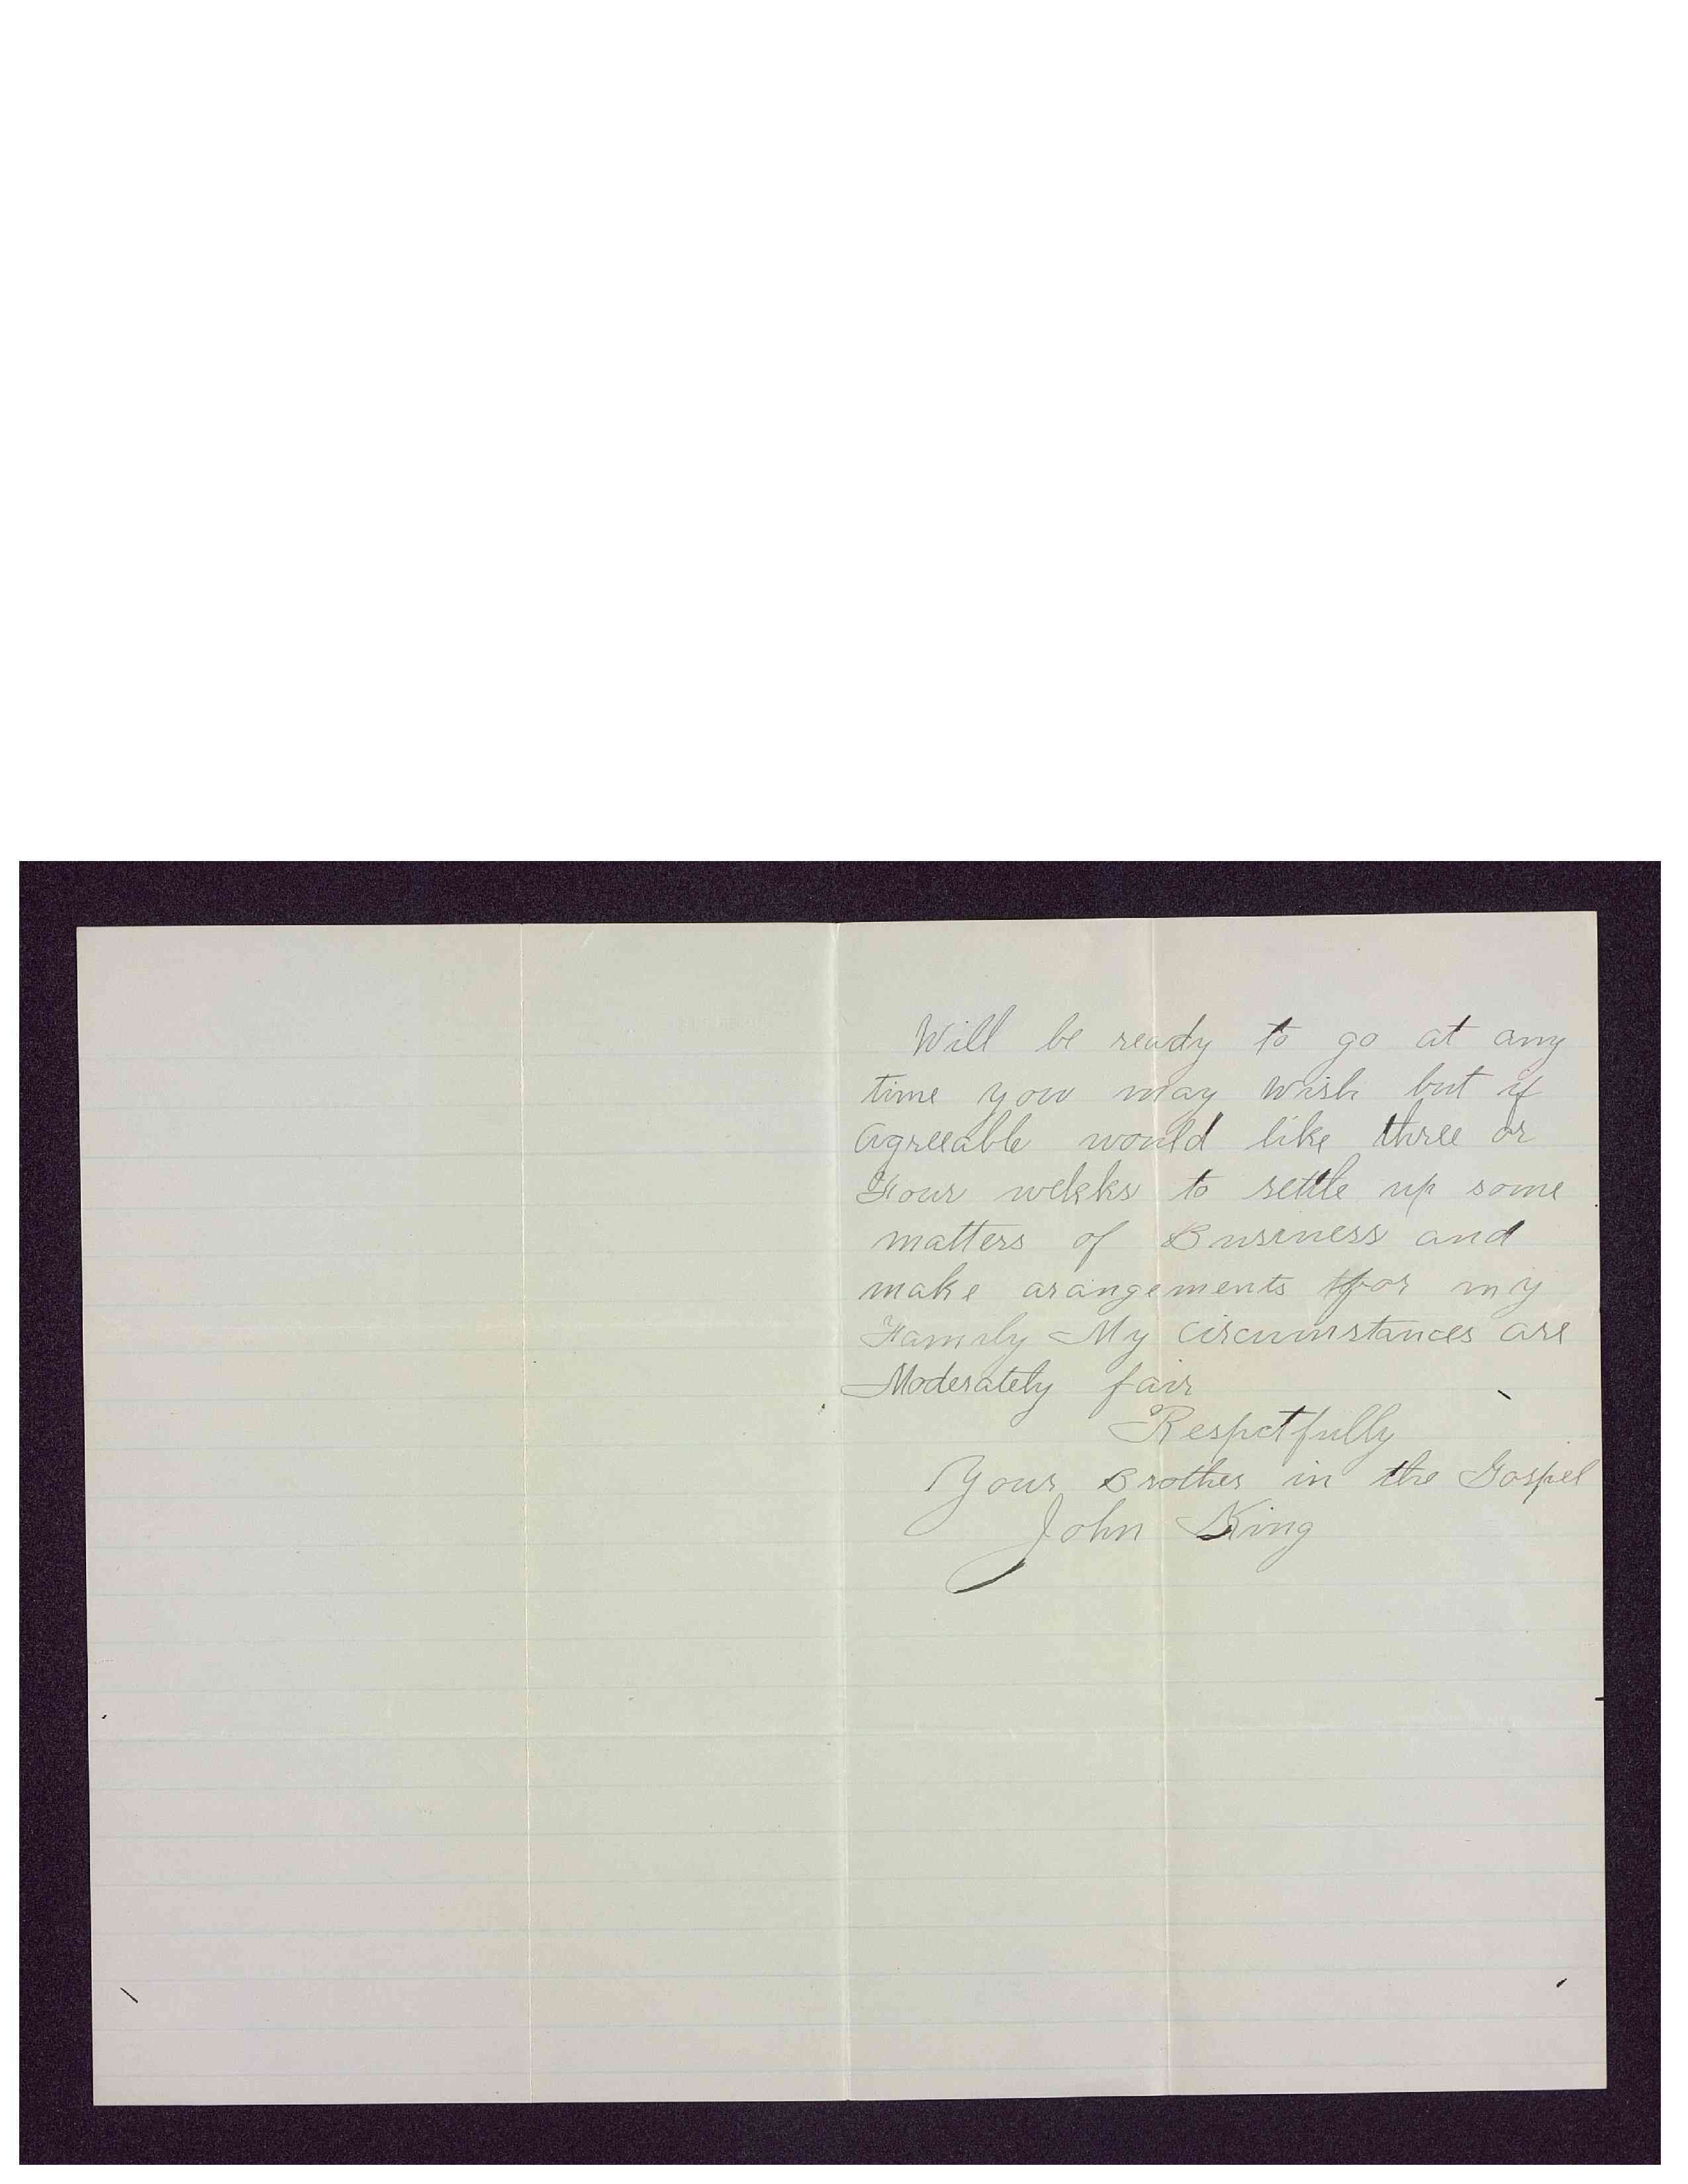 Will be ready to go at any
time you may wish but if
agreeable would like three or
Four weeks to settle up some
matters of Business and
make arangements for my
Family My circumstances are
Moderately fair
Respctfully
Your Brother in the Gospel
John King